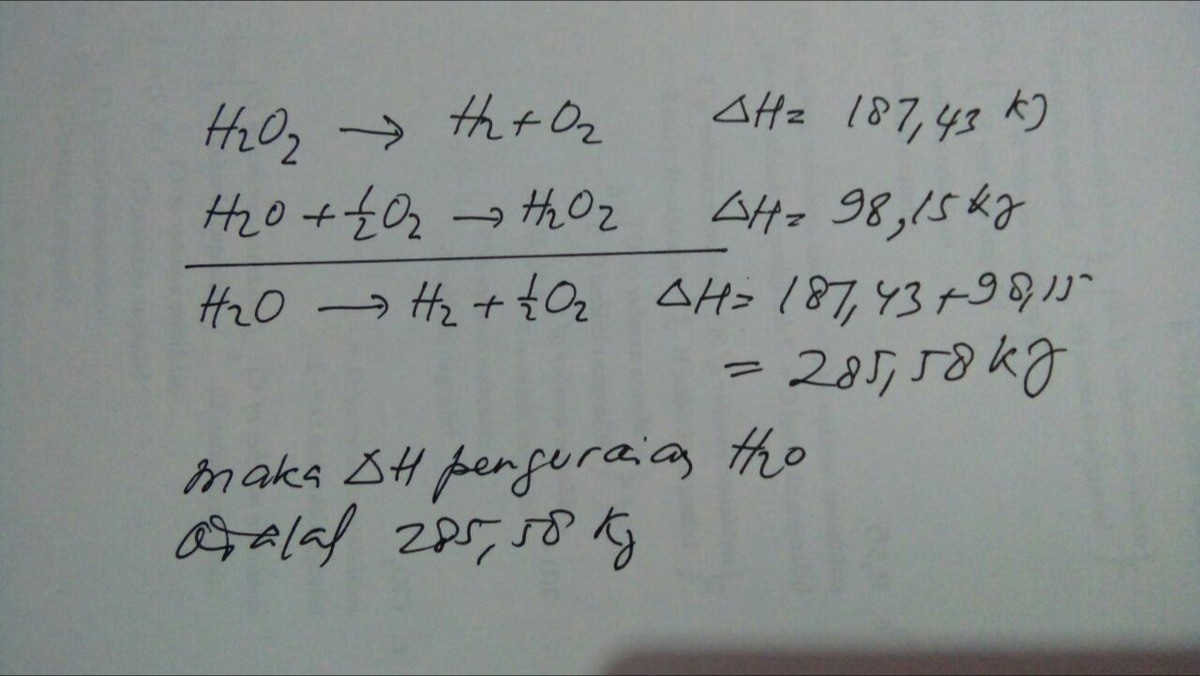 H₂O₂ → H₂ + O₂ ΔH = 187,43 kJ
H₂O + ½O₂ → H₂O₂ ΔH = 98,15 kJ
H₂O → H₂ + ½O₂ ΔH = 187,43 + 98,15
= 285,58 kJ
maka ΔH penguraian H₂O
adalah 285,58 kJ